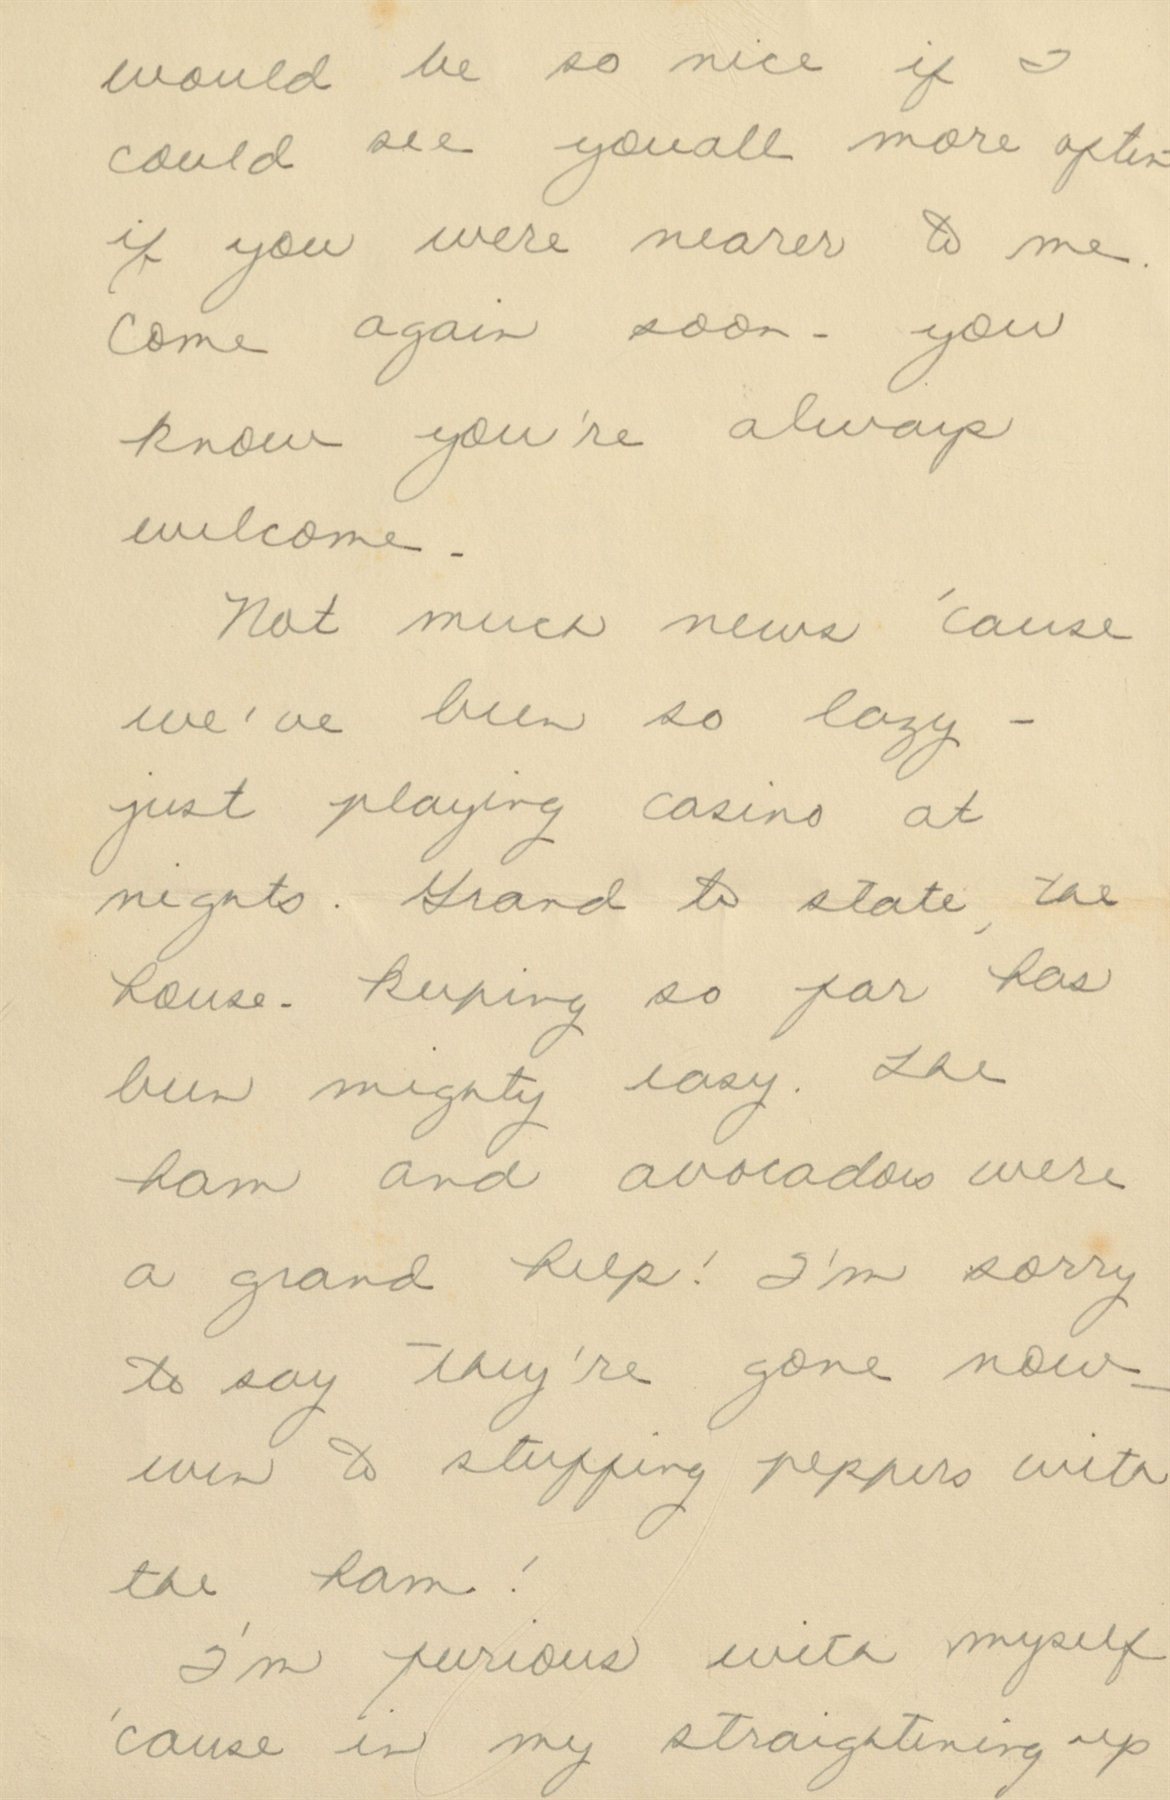 would be so nice if I
could see youall more often
if you were nearer to me.
Come again soon - you
know you're always
welcome -
Not much news 'cause
we've been so lazy -
just playing casino at
nights. Grand to state, the
house-keeping so far has
been mighty easy. The
ham and avocadoes were
a grand help! I'm sorry
to say they're gone now -
even to stuffing peppers with
the ham!
I'm furious with myself
'cause in my straightening up